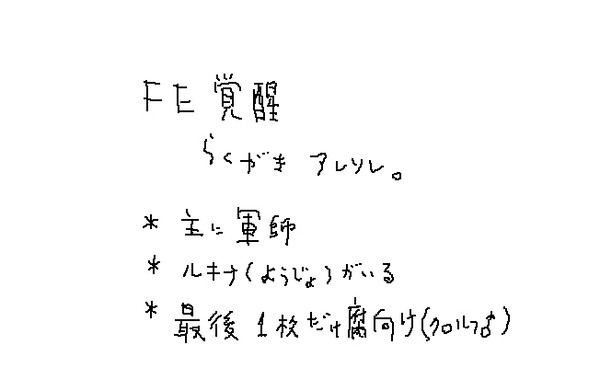 FE覚醒
らくがき アレソレ。
* 主に軍師
* ルキナ(ようじょ)がいる
* 最後1枚だけ腐向け(クロルフ♂)